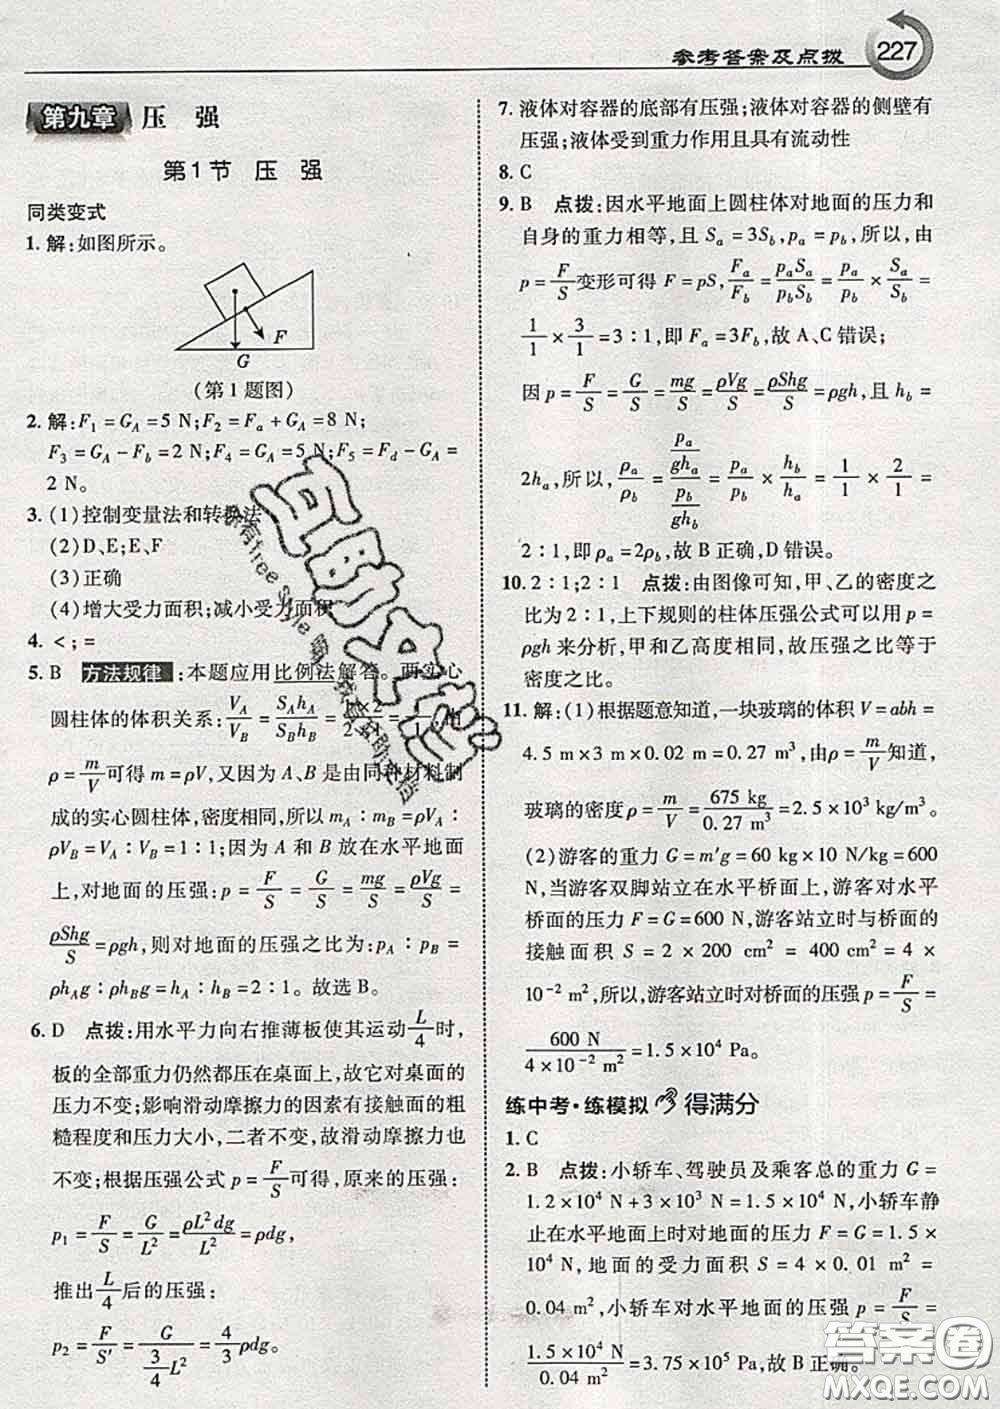 参考答案及点拨 227
第九章 压 强
第1节 压 强
同类变式
1. 解:如图所示。
F
G
(第1题图)
2. 解:F₁=G_A=5 N;F₂=F_a+G_A=8 N;
F₃=G_A-F_b=2 N;F₄=G_A=5 N;F₅=F_d-G_A=
2 N。
3. (1)控制变量法和转换法
(2)D、E;E、F
(3)正确
(4)增大受力面积;减小受力面积
4. <;=
5. B 方法规律:本题应用比例法解答。两实心
圆柱体的体积关系:V_A/V_B=S_A h_A/S_B h_B=
ρ=m/V可得 m=ρV,又因为 A、B 是由同种材料制
成的实心圆柱体,密度相同,所以 m_A∶m_B=ρV_A∶
ρV_B=V_A∶V_B=1∶1;因为 A 和 B 放在水平地面
上,对地面的压强:p=F/S=G/S=mg/S=ρVg/S=
ρShg/S=ρgh,则对地面的压强之比为:p_A∶p_B=
ρh_A g∶ρh_B g=h_A∶h_B=2∶1。故选 B。
6. D 点拨:用水平力向右推薄板使其运动L/4时,
板的全部重力仍然都压在桌面上,故它对桌面的
压力不变;影响滑动摩擦力的因素有接触面的粗
糙程度和压力大小,二者不变,故滑动摩擦力也
不变;根据压强公式 p=F/S可得,原来的压强:
p₁=F/S=G/L²=ρL²dg/L²=ρdg,
推出L/4后的压强:
p₂=F/S′=G/(3/4 L²)=4/3 ρdg。
7. 液体对容器的底部有压强;液体对容器的侧壁有
压强;液体受到重力作用且具有流动性
8. C
9. B 点拨:因水平地面上圆柱体对地面的压力和
自身的重力相等,且 S_a=3S_b,p_a=p_b,所以,由
p=F/S变形可得 F=pS,F_a/F_b=p_aS_a/p_bS_b=p_a/p_b×S_a/S_b=
1/1×3/1=3∶1,即 F_a=3F_b,故 A、C 错误;
因 p=F/S=G/S=mg/S=ρVg/S=ρShg/S=ρgh,且 h_b=
2h_a,所以,ρ_a/ρ_b=(p_a/gh_a)/(p_b/gh_b)=p_a/p_b×h_b/h_a=1/1×2/1=
2∶1,即ρ_a=2ρ_b,故 B 正确,D 错误。
10. 2∶1;2∶1 点拨:由图像可知,甲、乙的密度之
比为 2∶1,上下规则的柱体压强公式可以用 p=
ρgh 来分析,甲和乙高度相同,故压强之比等于
密度之比。
11. 解:(1)根据题意知道,一块玻璃的体积 V=abh=
4.5 m×3 m×0.02 m=0.27 m³,由ρ=m/V知道,
玻璃的密度ρ=m/V=675 kg/0.27 m³=2.5×10³ kg/m³。
(2)游客的重力 G=m′g=60 kg×10 N/kg=600
N,当游客双脚站立在水平桥面上,游客对水平
桥面的压力 F=G=600 N,游客站立时与桥面的
接触面积 S=2×200 cm²=400 cm²=4×
10⁻² m²,所以,游客站立时对桥面的压强 p=F/S=
600 N/(4×10⁻² m²)=1.5×10⁴ Pa。
练中考·练模拟 得满分
1. C
2. B 点拨:小轿车、驾驶员及乘客总的重力 G=
1.2×10⁴ N+3×10³ N=1.5×10⁴ N,小轿车静
止在水平地面上时对地面的压力 F=G=1.5×
10⁴ N,地面的受力面积 S=4×0.01 m²=
0.04 m²,小轿车对水平地面的压强 p=F/S=
1.5×10⁴ N/0.04 m²=3.75×10⁵ Pa,故 B 正确。
答案圈
MXQE.COM